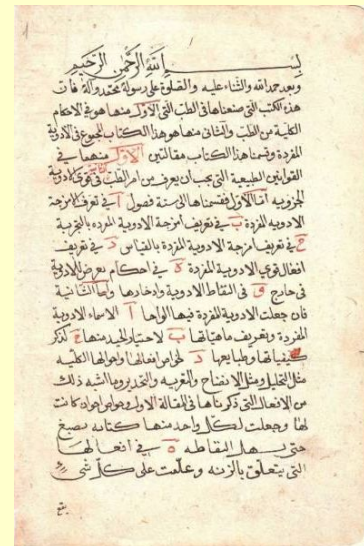 بسم الله الرحمن الرحيم
وبعد حمد الله والثناء عليه والصلوة على رسوله محمد وآله فان
هذه الكتب التي صنعناها في الطب التي الاول منها هو في الاحكام
الكلية من الطب والثاني منها هو هذا الكتاب المجموع في الادوية
المفردة وقسمنا هذا الكتاب مقالتين الاولى منهما في
القوانين الطبيعية التي يجب ان يعرف من امر الطب في قوى الادوية
الجزويه اما الاولى فقسمناها الى ستة فصول ا في تعرف امزجة
الادويه المفردة ب في تعريف امزجة الادوية المفرده بالتجربة
ج في تعريف امزجة الادوية المفردة بالقياس د في تعريف
افعال قوى الادوية المفردة ه في احكام يعرض للادوية
في خارج و في التقاط الادوية وادخارها واما الثانية
فان جعلت الادوية المفردة فيها الواحا ا لاسماء الادوية
المفردة وتعريف ماهياتها ب لاختيار الجيد منها ج لذكر
كيفياتها وطبايعها د لخواص افعالها واحوالها الكلية
مثل التحليل ومثل الانضاج والتغريه والتخدير وما اشبه ذلك
من الافعال التي ذكرناها في المقالة الاولى وخواص اخرى ان كانت
لها وجعلت لكل واحد منها كتابه بصبغ
حتى يسهل التقاطه ه في افعالها
التي يتعلق بالزينه وعلمت على كل شي